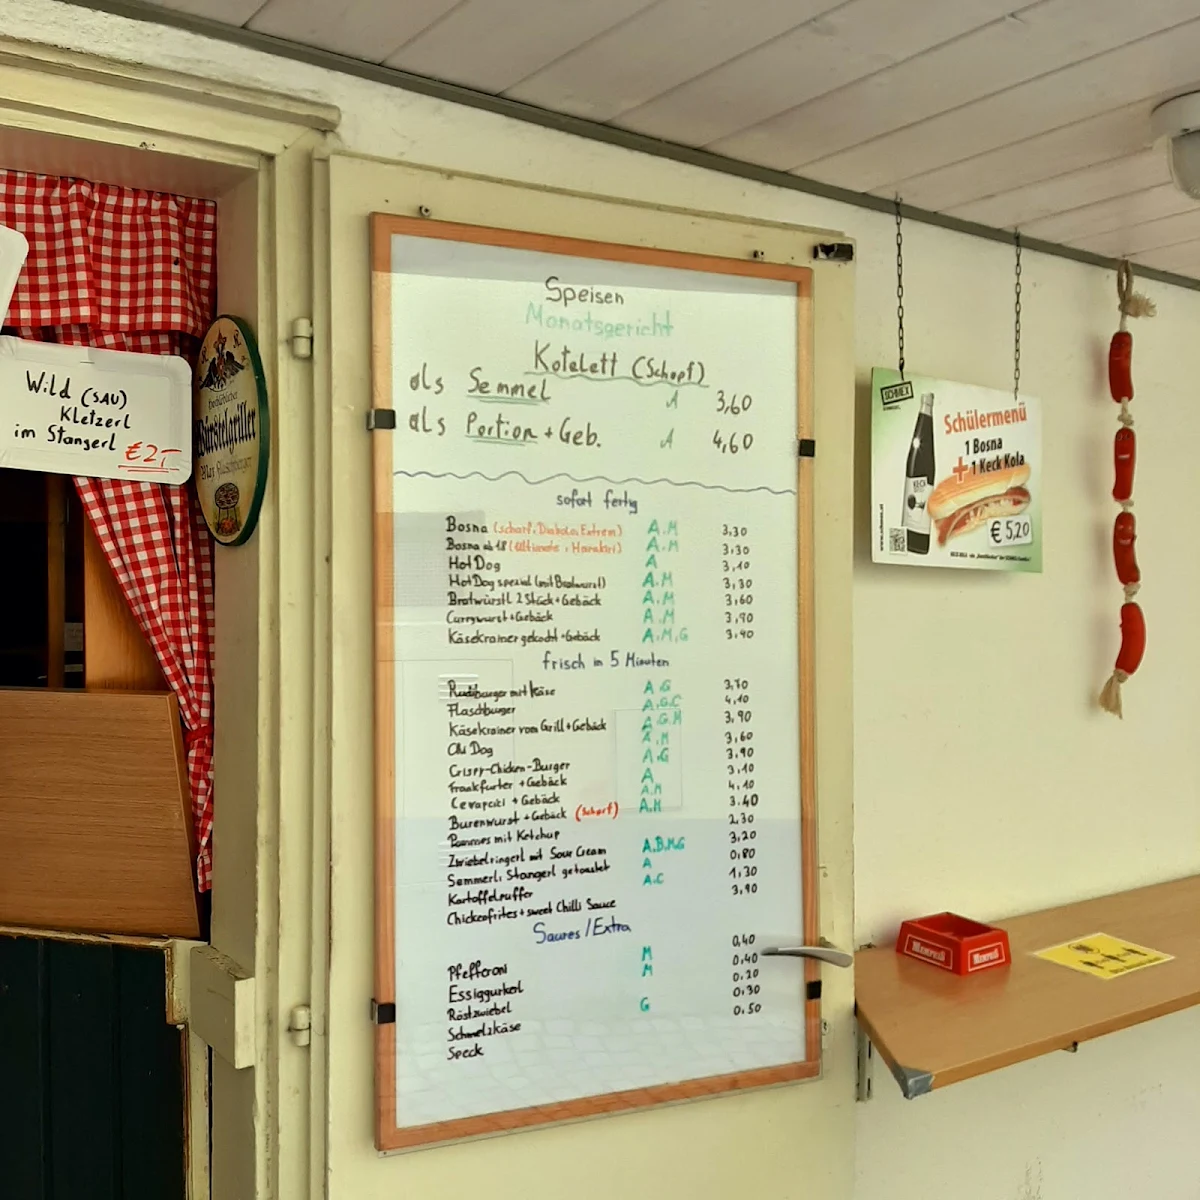 Wild (SAU)
Kletzerl
im Stangerl €2,-
Bürstelgriller
Speisen
Monatsgericht
Kotelett (Schopf)
als Semmel A 3,60
als Portion + Geb. A 4,60
sofort fertig
Bosna (scharf, Diabolo, Extrem) A.M 3,30
Bosna ab 18 (Ultimate, Harakiri) A.M 3,30
Hot Dog A 3,10
Hot Dog spezial (mit Bratwurst) A.M 3,30
Bratwürstl 2 Stück + Gebäck A.M 3,60
Currywurst + Gebäck A.M 3,90
Käsekrainer gekocht + Gebäck A.M.G 3,40
frisch in 5 Minuten
Rudiburger mit Käse A.G 3,70
Flaschburger A.G.C 4,10
Käsekrainer vom Grill + Gebäck A.G.M 3,90
Chi Dog A.M 3,60
Crispy-Chicken-Burger A.G 3,90
Frankfurter + Gebäck A 3,10
Cevapcici + Gebäck A.M 4,10
Burenwurst + Gebäck (Scharf) A.M 3.40
Pommes mit Ketchup 2,30
Zwiebelringerl mit Sour Cream A.B.M.G 3,20
Semmerl, Stangerl getoastet A 0,80
Kartoffelpuffer A.C 1,30
Chickenfrites + sweet Chilli Sauce 3,90
Saures/Extra
Pfefferoni M 0,40
Essiggurkerl M 0,40
Röstzwiebel 0,20
Schmelzkäse G 0,30
Speck 0,50
SCHMEX
Schülermenü
1 Bosna
+ 1 Keck Kola
KECK
€ 5,20
www.schmex.at
MEMPHIS
MEMPHIS